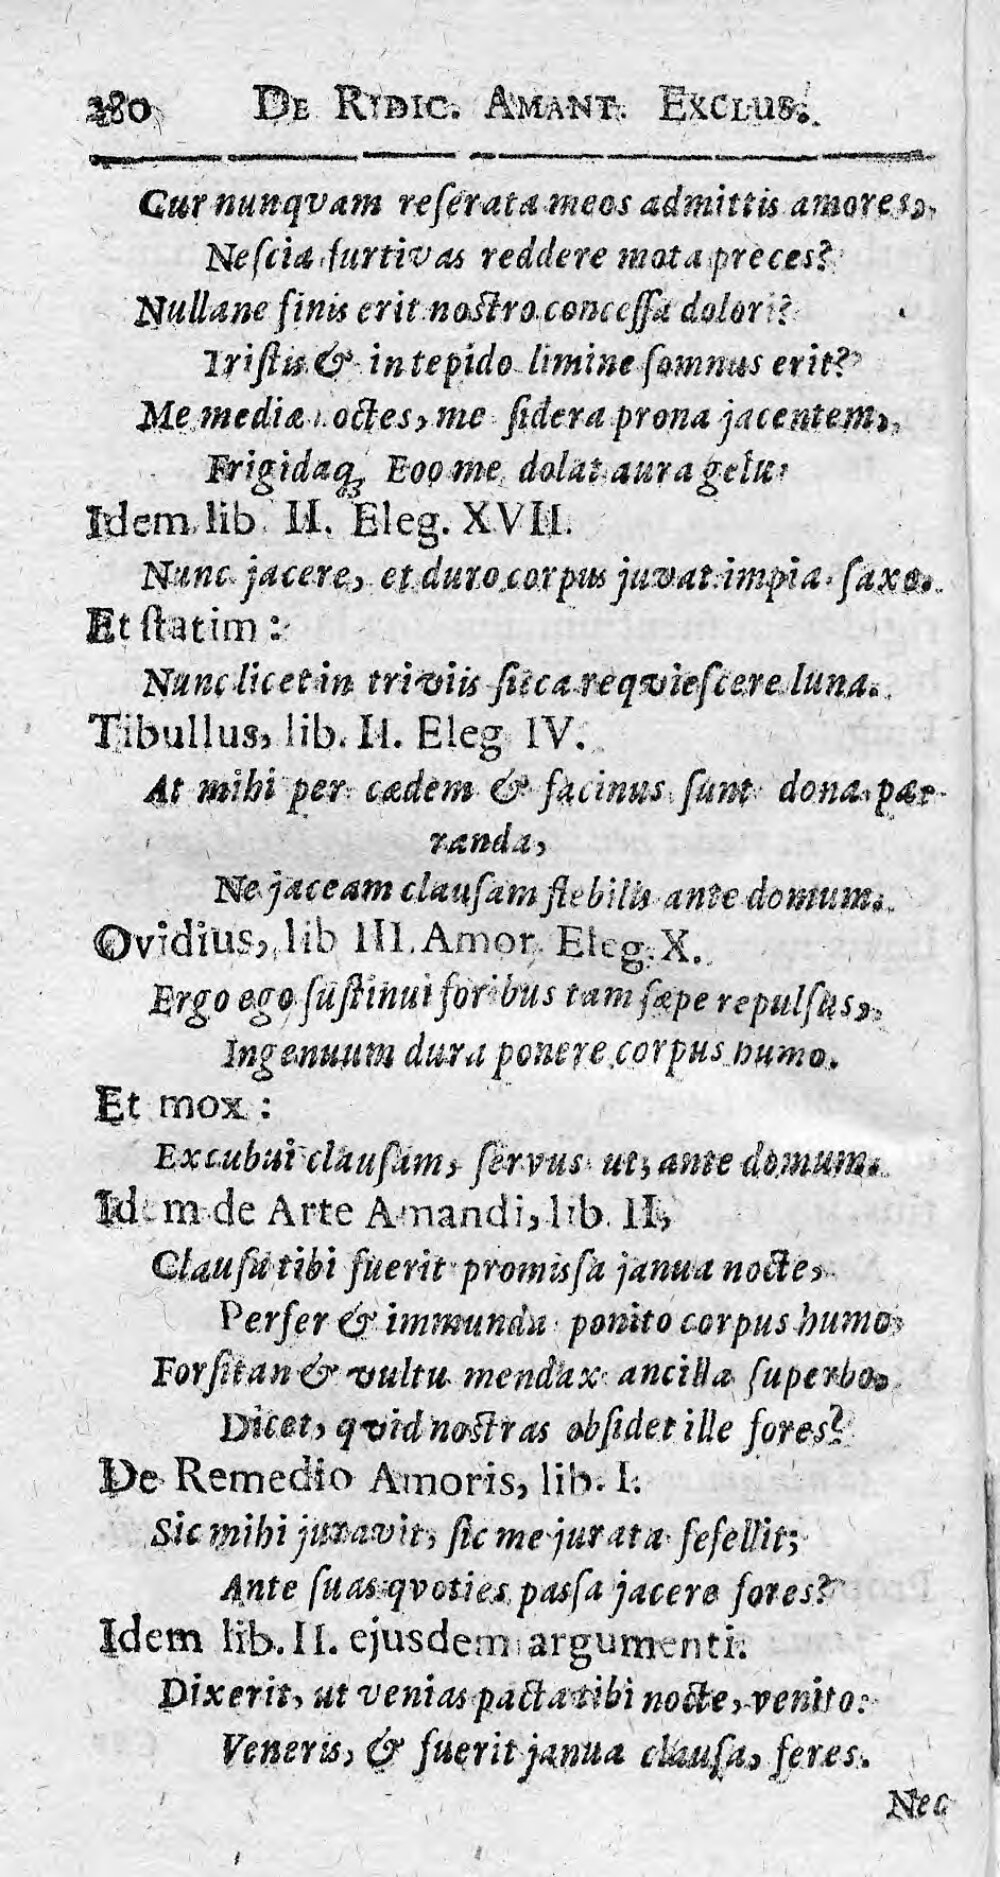 280 DE RIDIC. AMANT. EXCLUS.
Cur nunqvam reſerata meos admittis amores,
Neſcia furtivas reddere mota preces?
Nullane finis erit noſtro conceſſa dolori?
Triſtis & in tepido limine ſomnus erit?
Me mediæ noctes, me ſidera prona jacentem,
Frigidaq; Eoo me dolat aura gelu:
Idem lib. II. Eleg. XVII.
Nunc jacere, et duro corpus juvat impia ſaxo.
Et ſtatim:
Nunc licet in triviis ſicca reqvieſcere luna.
Tibullus, lib. II. Eleg IV.
At mihi per cædem & facinus ſunt dona pær-
randa,
Ne jaceam clauſam flebilis ante domum.
Ovidius, lib III. Amor. Eleg. X.
Ergo ego ſuſtinui foribus tam ſæpe repulſus,
Ingenuum dura ponere corpus humo.
Et mox:
Excubui clauſam, ſervus ut, ante domum.
Idem de Arte Amandi, lib. II,
Clauſa tibi fuerit promiſsa janua nocte,
Perfer & immunda ponito corpus humo,
Forſitan & vultu mendax ancilla ſuperbo.
Dicet, qvid noſtras obſidet ille fores?
De Remedio Amoris, lib. I.
Sic mihi juravit, ſic me jurata fefellit;
Ante ſuas qvoties paſsa jacere fores?
Idem lib. II. ejusdem argumenti.
Dixerit, ut venias pacta tibi nocte, venito:
Veneris, & fuerit janua clauſa, feres.
Nec